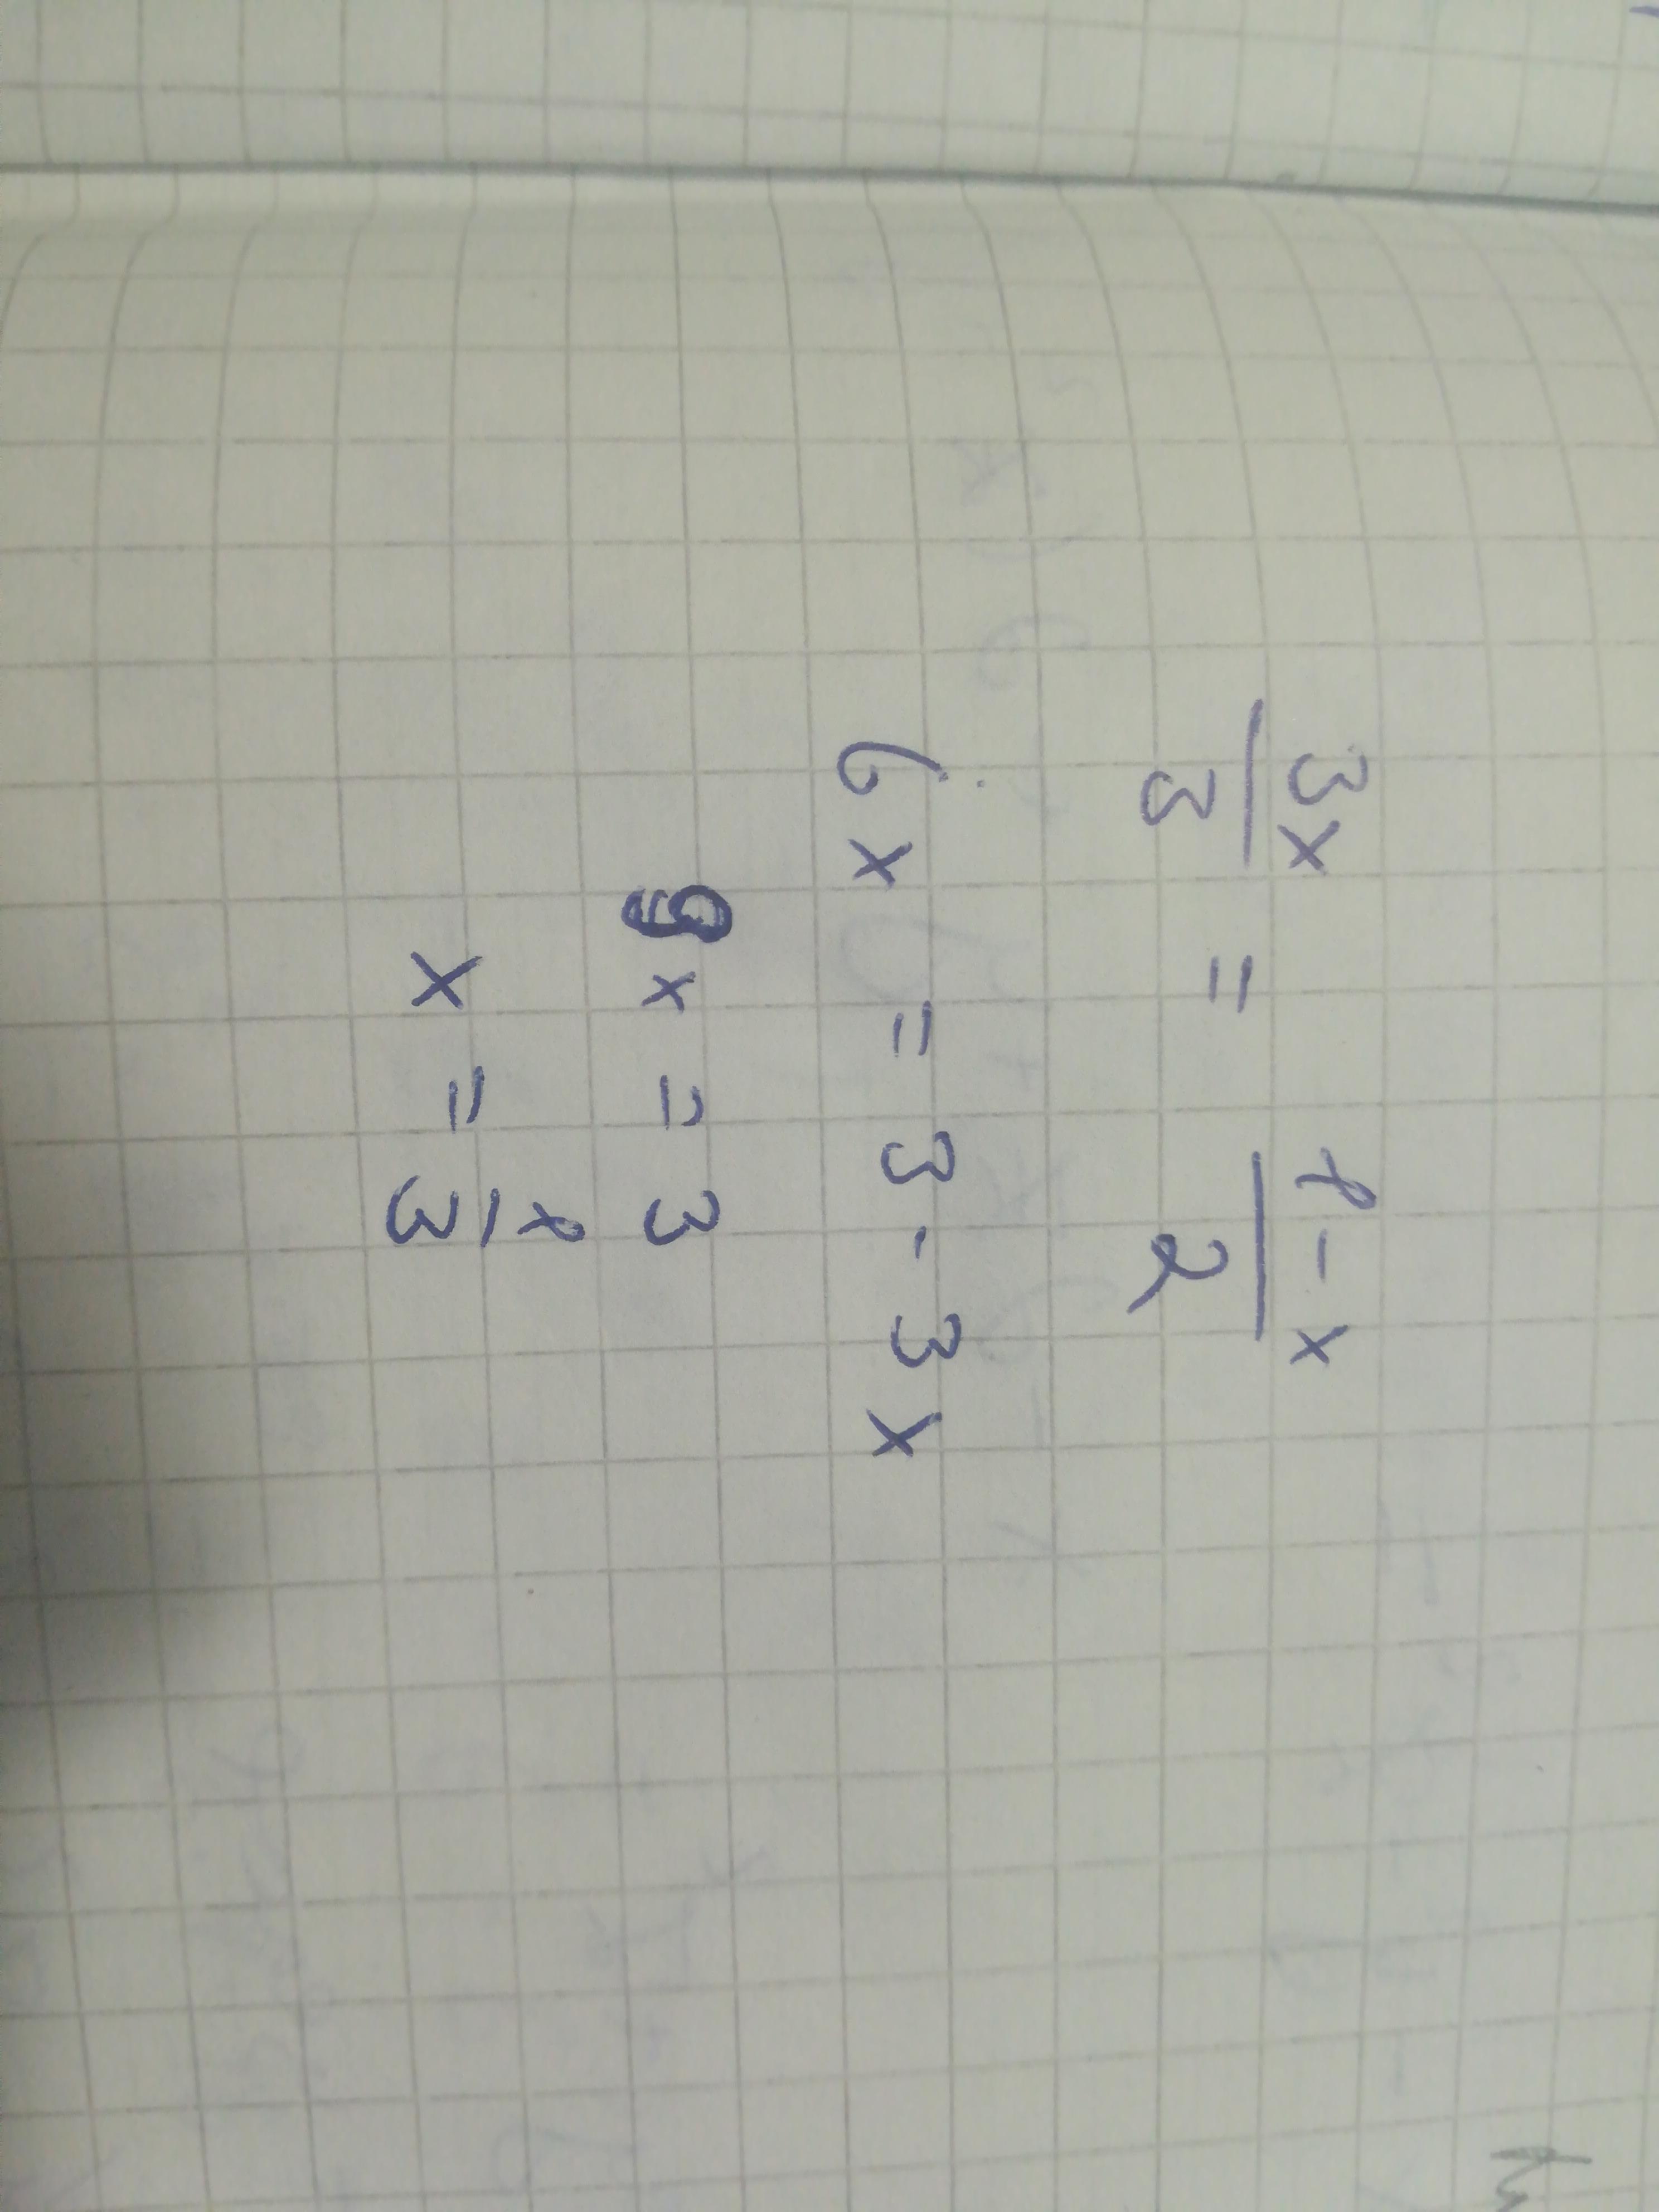 3x/3 = 1-x/2
6x = 3-3x
9x = 3
x = 1/3